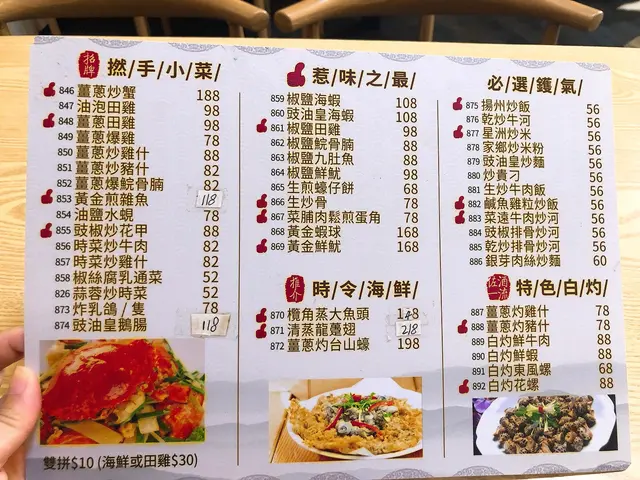 招牌 撚/手/小/菜/
846 薑蔥炒蟹 188
847 油泡田雞 98
848 薑蔥田雞 98
849 薑蔥爆雞 78
850 薑蔥炒雞什 88
851 薑蔥炒豬什 82
852 薑蔥爆鯇骨腩 82
853 黃金煎雜魚 118
854 油鹽水蜆 78
855 豉椒炒花甲 88
856 時菜炒牛肉 82
857 時菜炒雞什 82
858 椒絲腐乳通菜 52
826 蒜蓉炒時菜 52
873 炸乳鴿/隻 78
874 豉油皇鵝腸 118
雙拼$10 (海鮮或田雞$30)
惹/味/之/最/
859 椒鹽海蝦 108
860 豉油皇海蝦 108
861 椒鹽田雞 98
862 椒鹽鯇骨腩 88
863 椒鹽九肚魚 88
864 椒鹽鮮魷 98
865 生煎蠔仔餅 68
866 生炒骨 78
867 菜脯肉鬆煎蛋角 78
868 黃金蝦球 168
869 黃金鮮魷 168
推介 時/令/海/鮮/
870 欖角蒸大魚頭
871 清蒸龍躉翅 218
872 薑蔥灼台山蠔 198
必/選/鑊/氣/
875 揚州炒飯 56
876 乾炒牛河 56
877 星洲炒米 56
878 家鄉炒米粉 56
879 豉油皇炒麵 56
880 炒貴刁 56
881 生炒牛肉飯 56
882 鹹魚雞粒炒飯 56
883 菜遠牛肉炒河 56
884 豉椒排骨炒河 56
885 乾炒排骨炒河 56
886 銀芽肉絲炒麵 60
佐酒一流 特/色/白/灼/
887 薑蔥灼雞什 78
888 薑蔥灼豬什 78
889 白灼鮮牛肉 88
890 白灼鮮蝦 88
891 白灼東風螺 68
892 白灼花螺 88